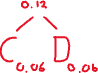 0.12
C D
0.06 0.06